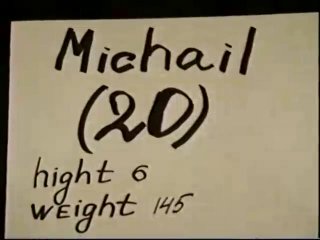 Michail
(20)
hight 6
WEight 145